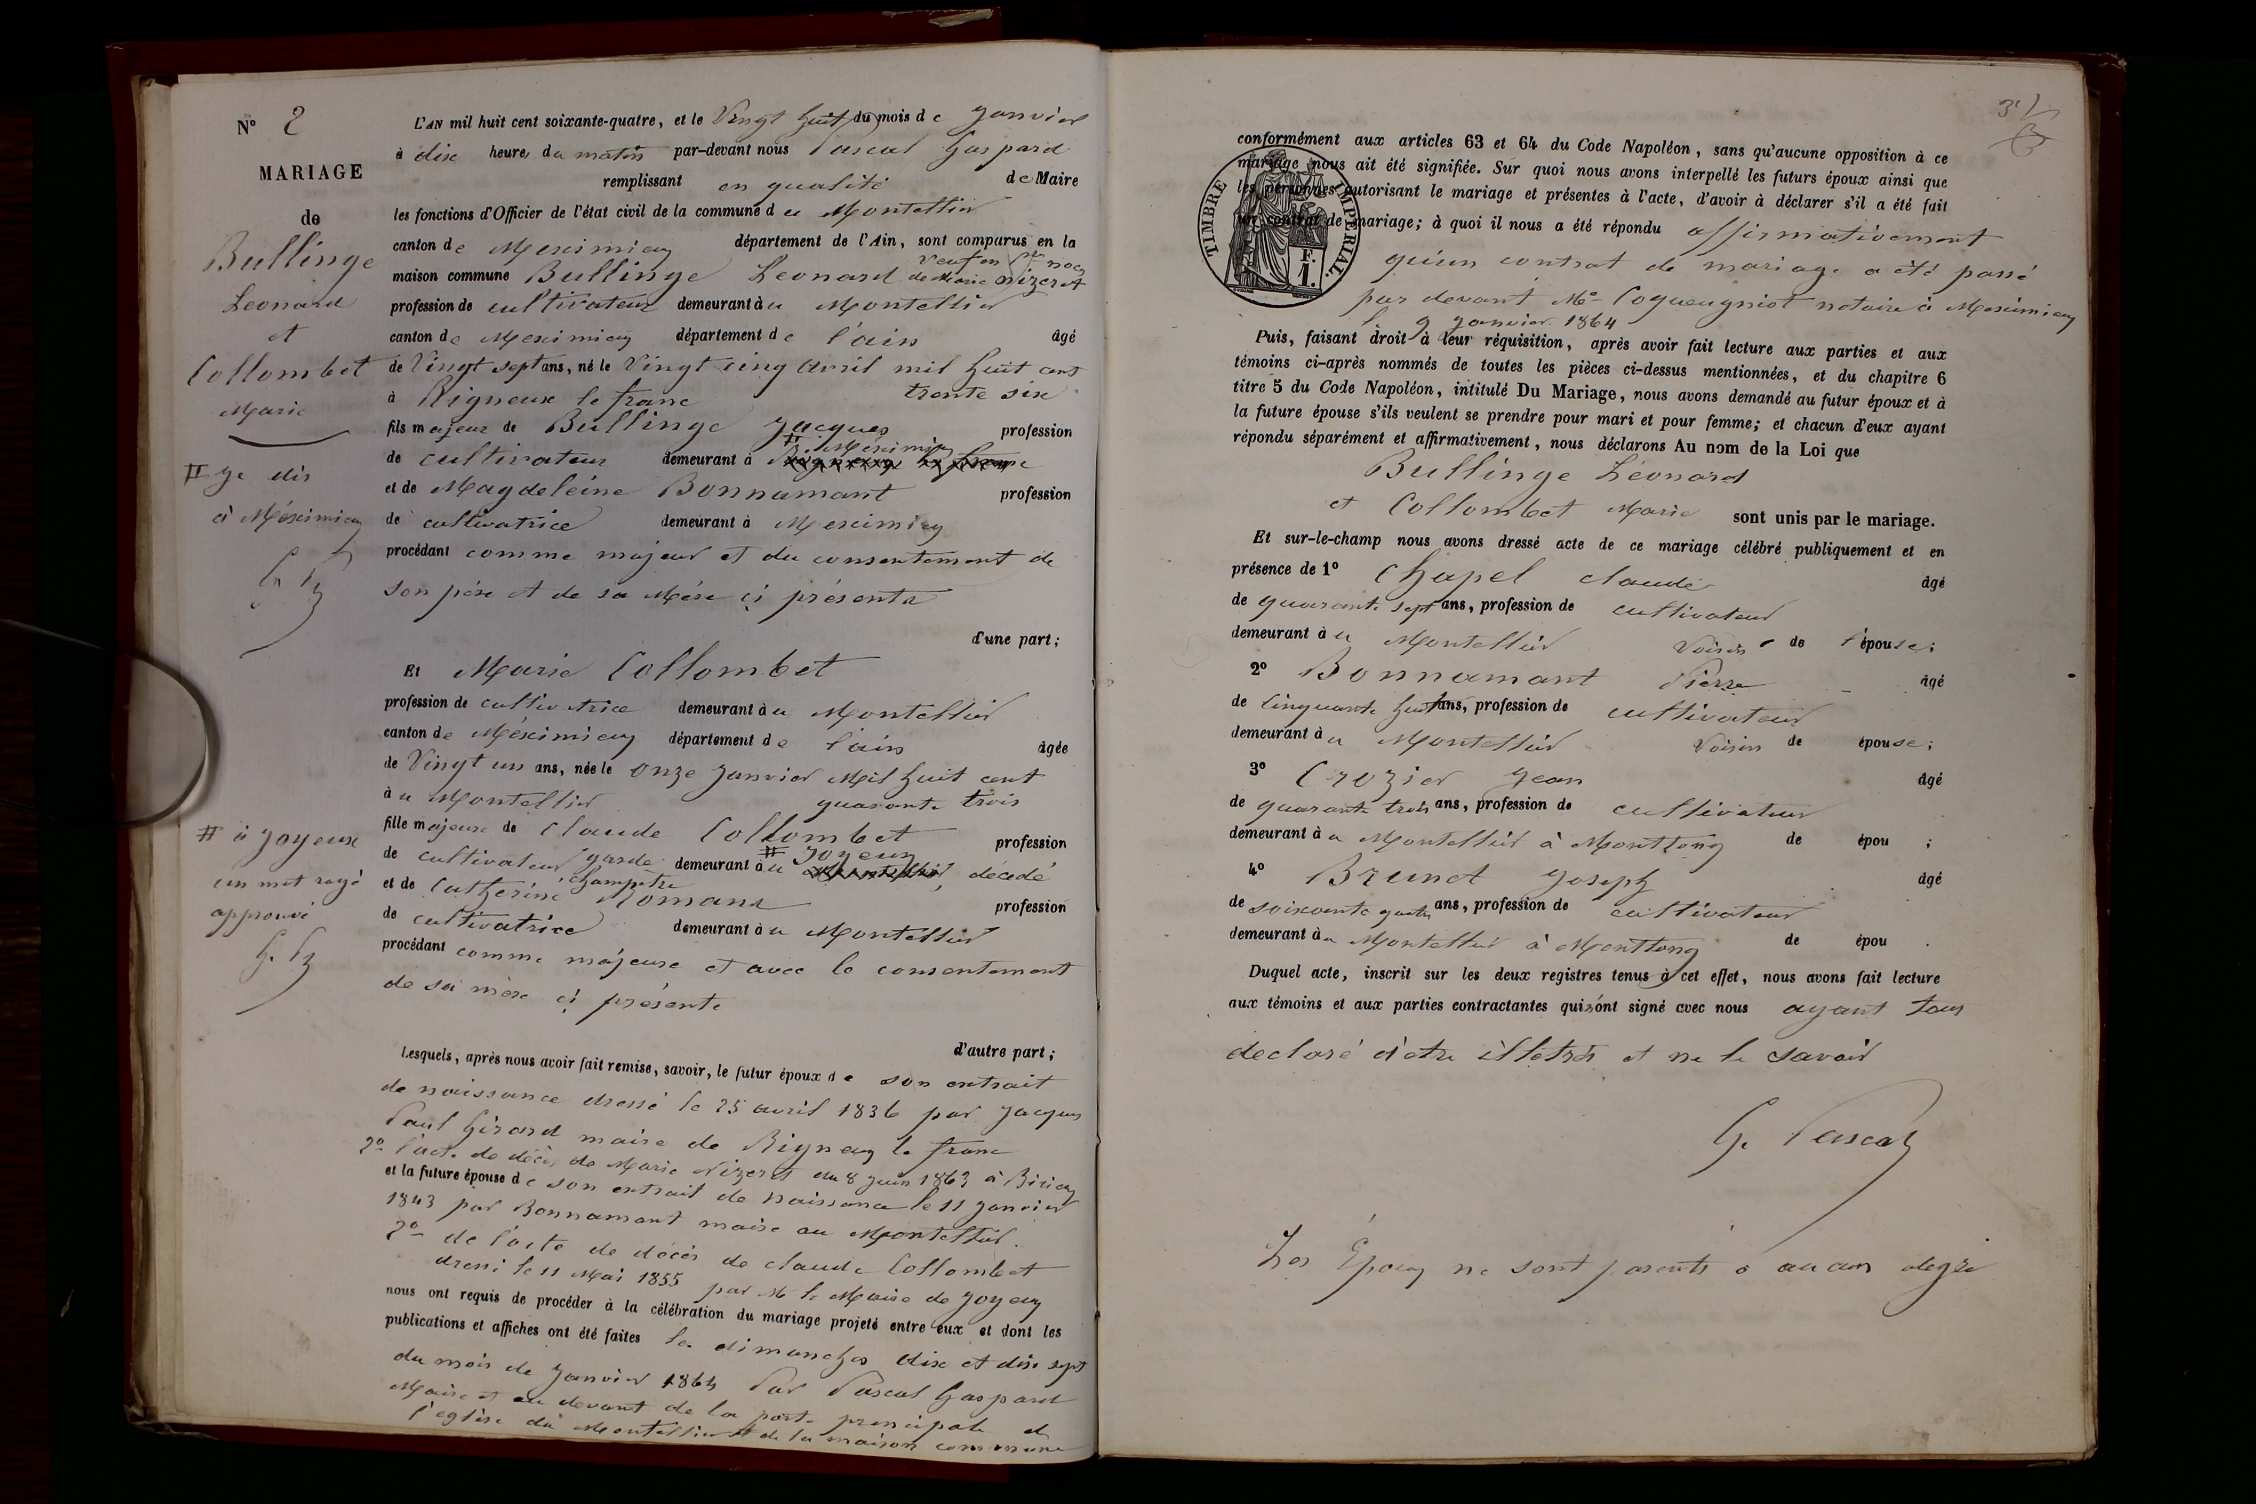 N° 2
MARIAGE
de
Bullinge
Leonard
et
Collombet
Marie
# Je dis
à Méximieux
G P
# à Joyeux
un mot rayé
approuvé
G. P
L'AN mil huit cent soixante-quatre, et le Vingt huit du mois de Janvier
à dix heures du matin par-devant nous Pascal Gaspard
remplissant en qualité de Maire
les fonctions d'Officier de l'état civil de la commune du Montellier
canton de Meximieux département de l'Ain, sont comparus en la
veuf en 1res noces
maison commune Bullinge Leonard de Marie Nizeret
profession de cultivateur demeurant à u Montellier
canton de Meximieux département de l'ain âgé
de Vingt sept ans, né le Vingt cinq Avril mil huit cent
à Rigneux le franc trente six
fils majeur de Bullinge Jacques profession
# Méximieux
de cultivateur demeurant à Rigneux le franc
et de Magdeleine Bonnamant profession
de cultivatrice demeurant à Meximieux
procédant comme majeur et du consentement de
son père et de sa Mère ci présents
d'une part;
Et Marie Collombet
profession de cultivatrice demeurant à u Montellier
canton de Méximieux département de l'ain âgée
de Vingt un ans, née le onze Janvier Mil huit cent
à u Montellier quarante trois
fille majeure de Claude Collombet profession
# Joyeux
de cultivateur garde champêtre demeurant à u Montellier, décédé
et de Catherine Romans profession
de cultivatrice demeurant à u Montellier
procédant comme majeure et avec le consentement
de sa mère ci présente
d'autre part;
Lesquels, après nous avoir fait remise, savoir, le futur époux de son extrait
de naissance dressé le 25 avril 1836 par Jacques
Paul Girard maire de Rigneux le franc
2° l'acte de décès de Marie Nizeret du 8 Juin 1863 à Birieux
et la future épouse de son extrait de naissance le 11 Janvier
1843 par Bonnamant maire au Montellier.
2° de l'acte de décès de Claude Collombet
dressé le 11 Mai 1855 par M le Maire de Joyeux
nous ont requis de procéder à la célébration du mariage projeté entre eux et dont les
publications et affiches ont été faites les dimanches dix et dix sept
du mois de Janvier 1864 Par Pascal Gaspard
Maire et au devant de la porte principale de
l'église du Montellier et de la maison commune
conformément aux articles 63 et 64 du Code Napoléon, sans qu'aucune opposition à ce
mariage nous ait été signifiée. Sur quoi nous avons interpellé les futurs époux ainsi que
les personnes autorisant le mariage et présentes à l'acte, d'avoir à déclarer s'il a été fait
un contrat de mariage; à quoi il nous a été répondu affirmativement
TIMBRE IMPÉRIAL.
F.
1.
qu'un contrat de mariage a été passé
par devant Me Coqueugniot notaire à Meximieux
le 9 Janvier 1864
Puis, faisant droit à leur réquisition, après avoir fait lecture aux parties et aux
témoins ci-après nommés de toutes les pièces ci-dessus mentionnées, et du chapitre 6
titre 5 du Code Napoléon, intitulé Du Mariage, nous avons demandé au futur époux et à
la future épouse s'ils veulent se prendre pour mari et pour femme; et chacun d'eux ayant
répondu séparément et affirmativement, nous déclarons Au nom de la Loi que
Bullinge Léonard
et Collombet Marie sont unis par le mariage.
Et sur-le-champ nous avons dressé acte de ce mariage célébré publiquement et en
présence de 1° Chapel Claude âgé
de quarante sept ans, profession de cultivateur
demeurant à u Montellier Voisin de l'épouse;
2° Bonnamant Pierre âgé
de Cinquante huit ans, profession de cultivateur
demeurant à u Montellier Voisin de épouse;
3° Crozier Jean âgé
de quarante trois ans, profession de cultivateur
demeurant à u Montellier à Monttong de épou ;
4° Brunet Joseph âgé
de soixante quatre ans, profession de cultivateur
demeurant à u Montellier à Monttong de épou
Duquel acte, inscrit sur les deux registres tenus à cet effet, nous avons fait lecture
aux témoins et aux parties contractantes qui ont signé avec nous ayant tous
declaré d'etre illétrés et ne le savoir
G. Pascal
Les Époux ne sont parents à aucun degré